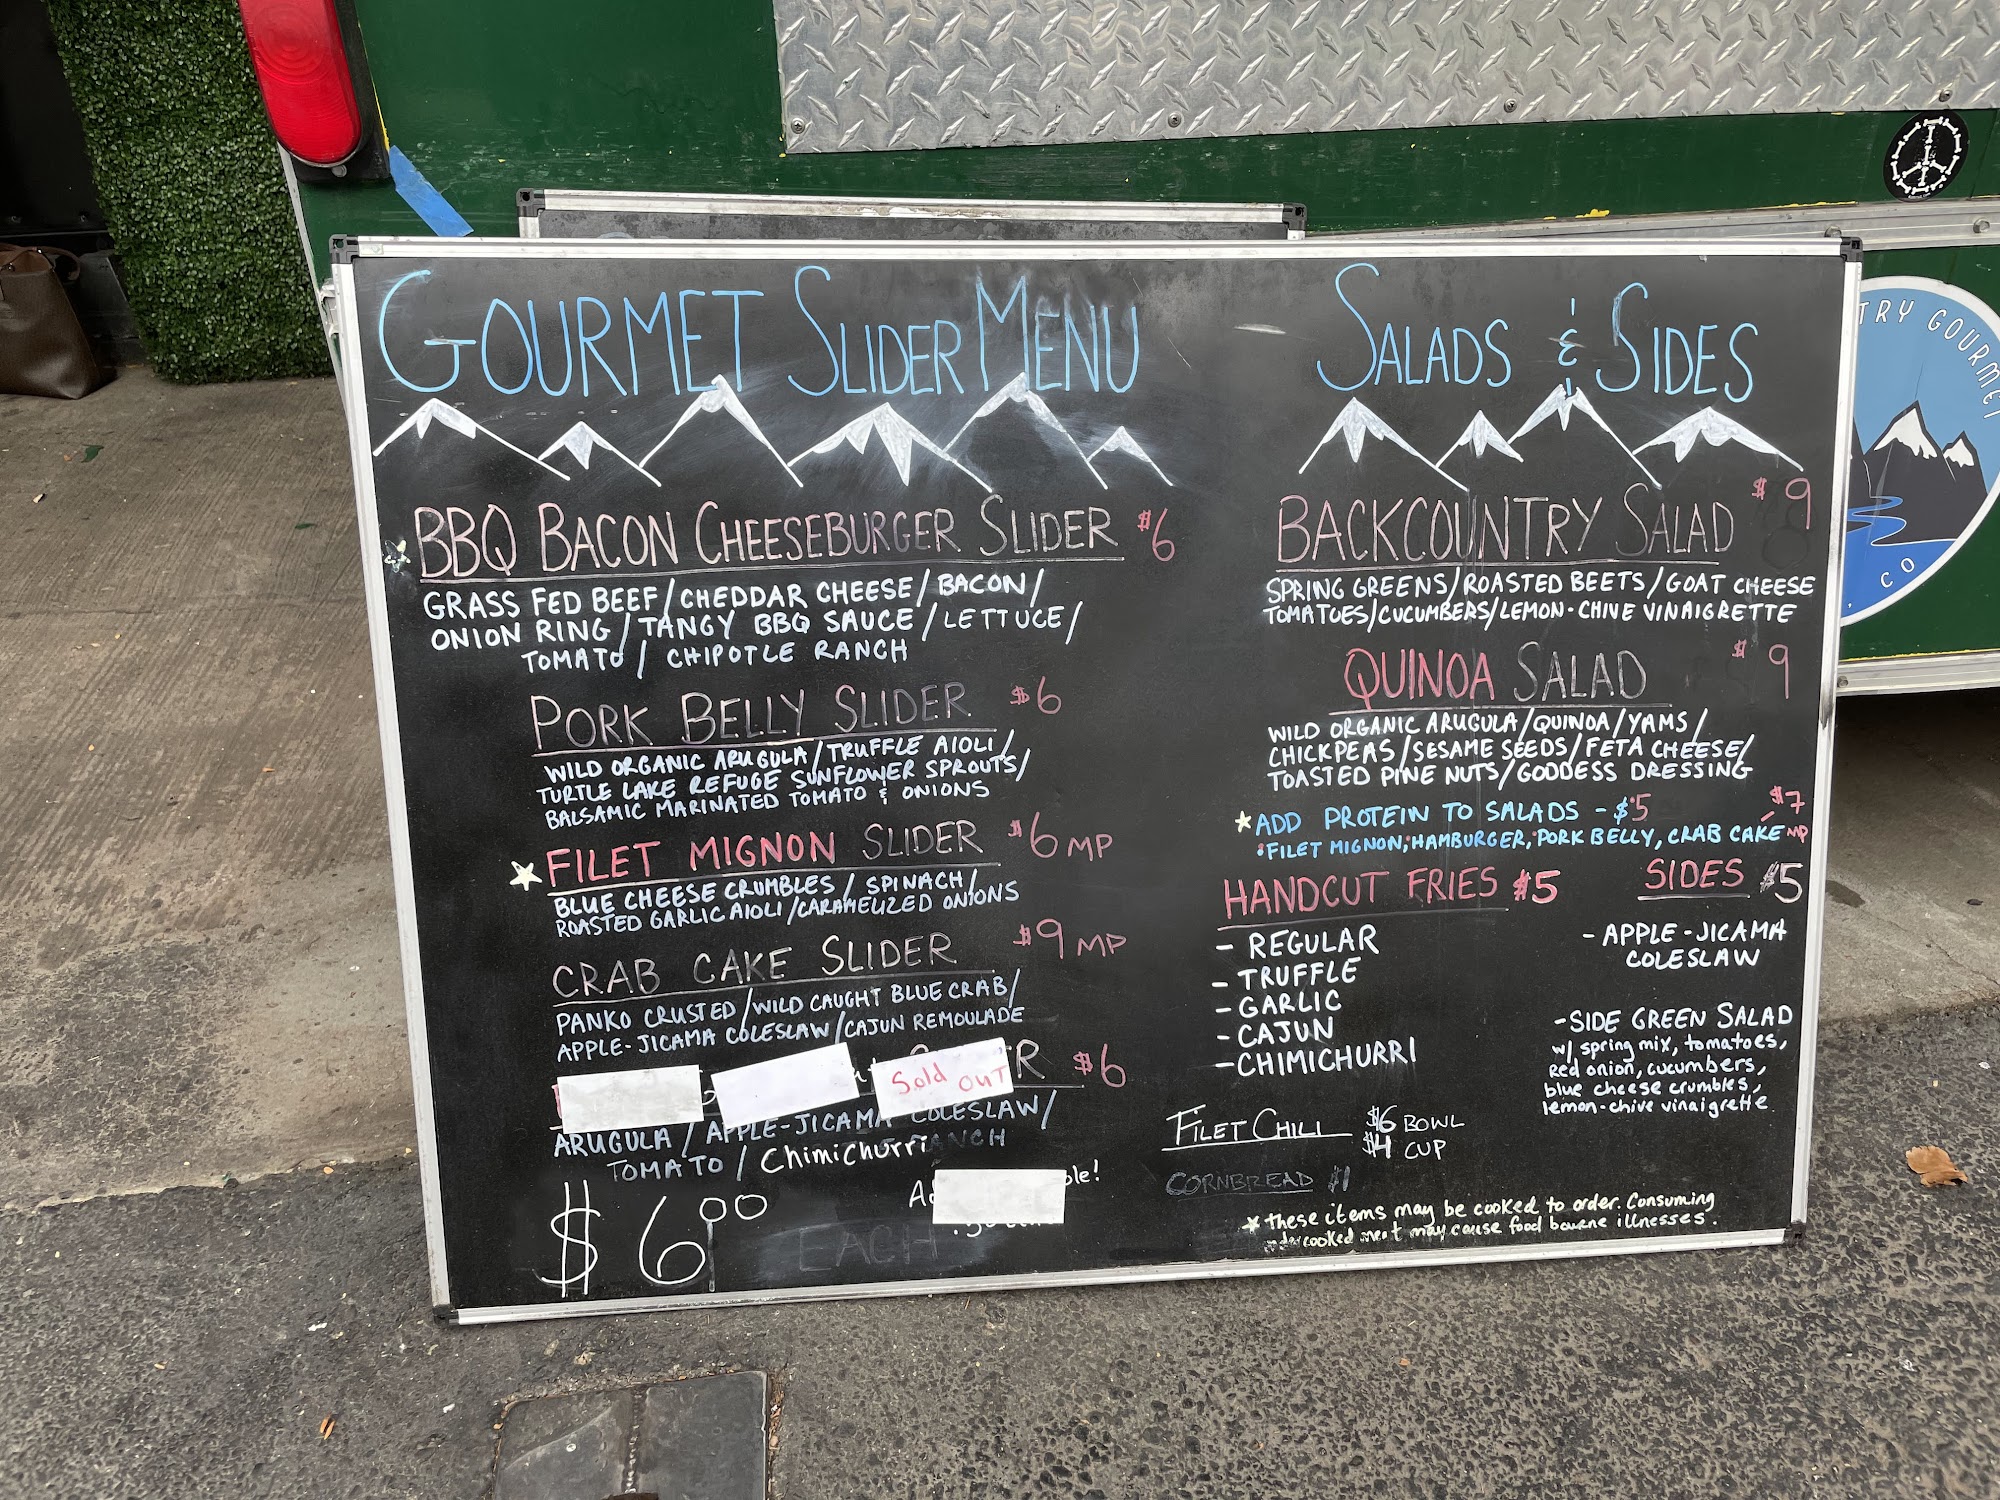 GOURMET SLIDER MENU
BBQ BACON CHEESEBURGER SLIDER $6
GRASS FED BEEF/CHEDDAR CHEESE/BACON/
ONION RING/TANGY BBQ SAUCE/LETTUCE/
TOMATO/CHIPOTLE RANCH
PORK BELLY SLIDER $6
WILD ORGANIC ARUGULA/TRUFFLE AIOLI/
TURTLE LAKE REFUGE SUNFLOWER SPROUTS/
BALSAMIC MARINATED TOMATO & ONIONS
FILET MIGNON SLIDER $6 MP
BLUE CHEESE CRUMBLES/SPINACH/
ROASTED GARLIC AIOLI/CARAMELIZED ONIONS
CRAB CAKE SLIDER $9 MP
PANKO CRUSTED/WILD CAUGHT BLUE CRAB/
APPLE-JICAMA COLESLAW/CAJUN REMOULADE
Sold OUT $6
ARUGULA/APPLE-JICAMA COLESLAW/
TOMATO/Chimichurri RANCH
$6.00 EACH
SALADS & SIDES
BACKCOUNTRY SALAD $9
SPRING GREENS/ROASTED BEETS/GOAT CHEESE
TOMATOES/CUCUMBERS/LEMON-CHIVE VINAIGRETTE
QUINOA SALAD $9
WILD ORGANIC ARUGULA/QUINOA/YAMS/
CHICKPEAS/SESAME SEEDS/FETA CHEESE/
TOASTED PINE NUTS/GODDESS DRESSING
ADD PROTEIN TO SALADS - $5 $7
FILET MIGNON, HAMBURGER, PORK BELLY, CRAB CAKE MP
HANDCUT FRIES $5
- REGULAR
- TRUFFLE
- GARLIC
- CAJUN
- CHIMICHURRI
SIDES $5
- APPLE-JICAMA
COLESLAW
- SIDE GREEN SALAD
w/ spring mix, tomatoes,
Red onion, cucumbers,
blue cheese crumbles,
lemon-chive vinaigrette.
FILET CHILI $6 BOWL
$4 CUP
CORNBREAD $1
* these items may be cooked to order. Consuming
undercooked meat may cause food bourne illnesses.
TRY GOURMET
CO